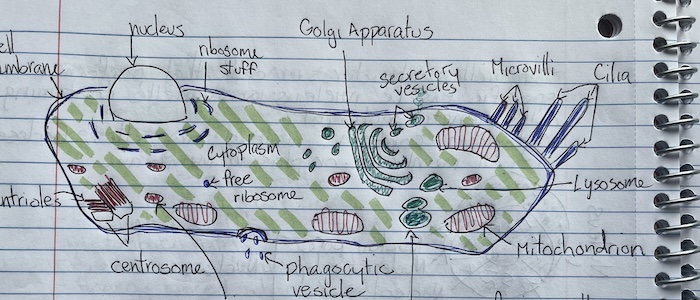 nucleus
Golgi Apparatus
ell
mbrane
ribosome
stuff
secretory
vesicles
Microvilli
Cilia
Cytoplasm
free
ribosome
Lysosome
ntrioles
Mitochondrion
centrosome
phagocytic
vesicle